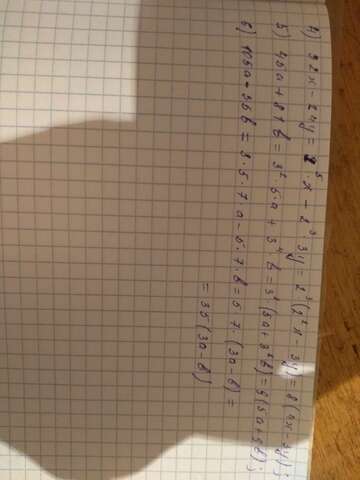 4) 32x - 24y = 2⁵ · x - 2³ · 3y = 2³ · (2²x - 3y) = 8 (4x - 3y);
5) 45a + 81b = 3² · 5 · a + 3⁴ b = 3² · (5a + 3²b) = 9 (5a + 9b);
6) 105a - 35b = 3 · 5 · 7 · a - 5 · 7 · b = 5 7 · (3a - b) =
= 35 (3a - b)